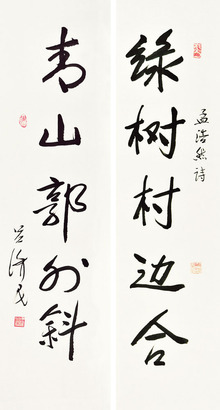 绿树村边合
孟浩然诗
青山郭外斜